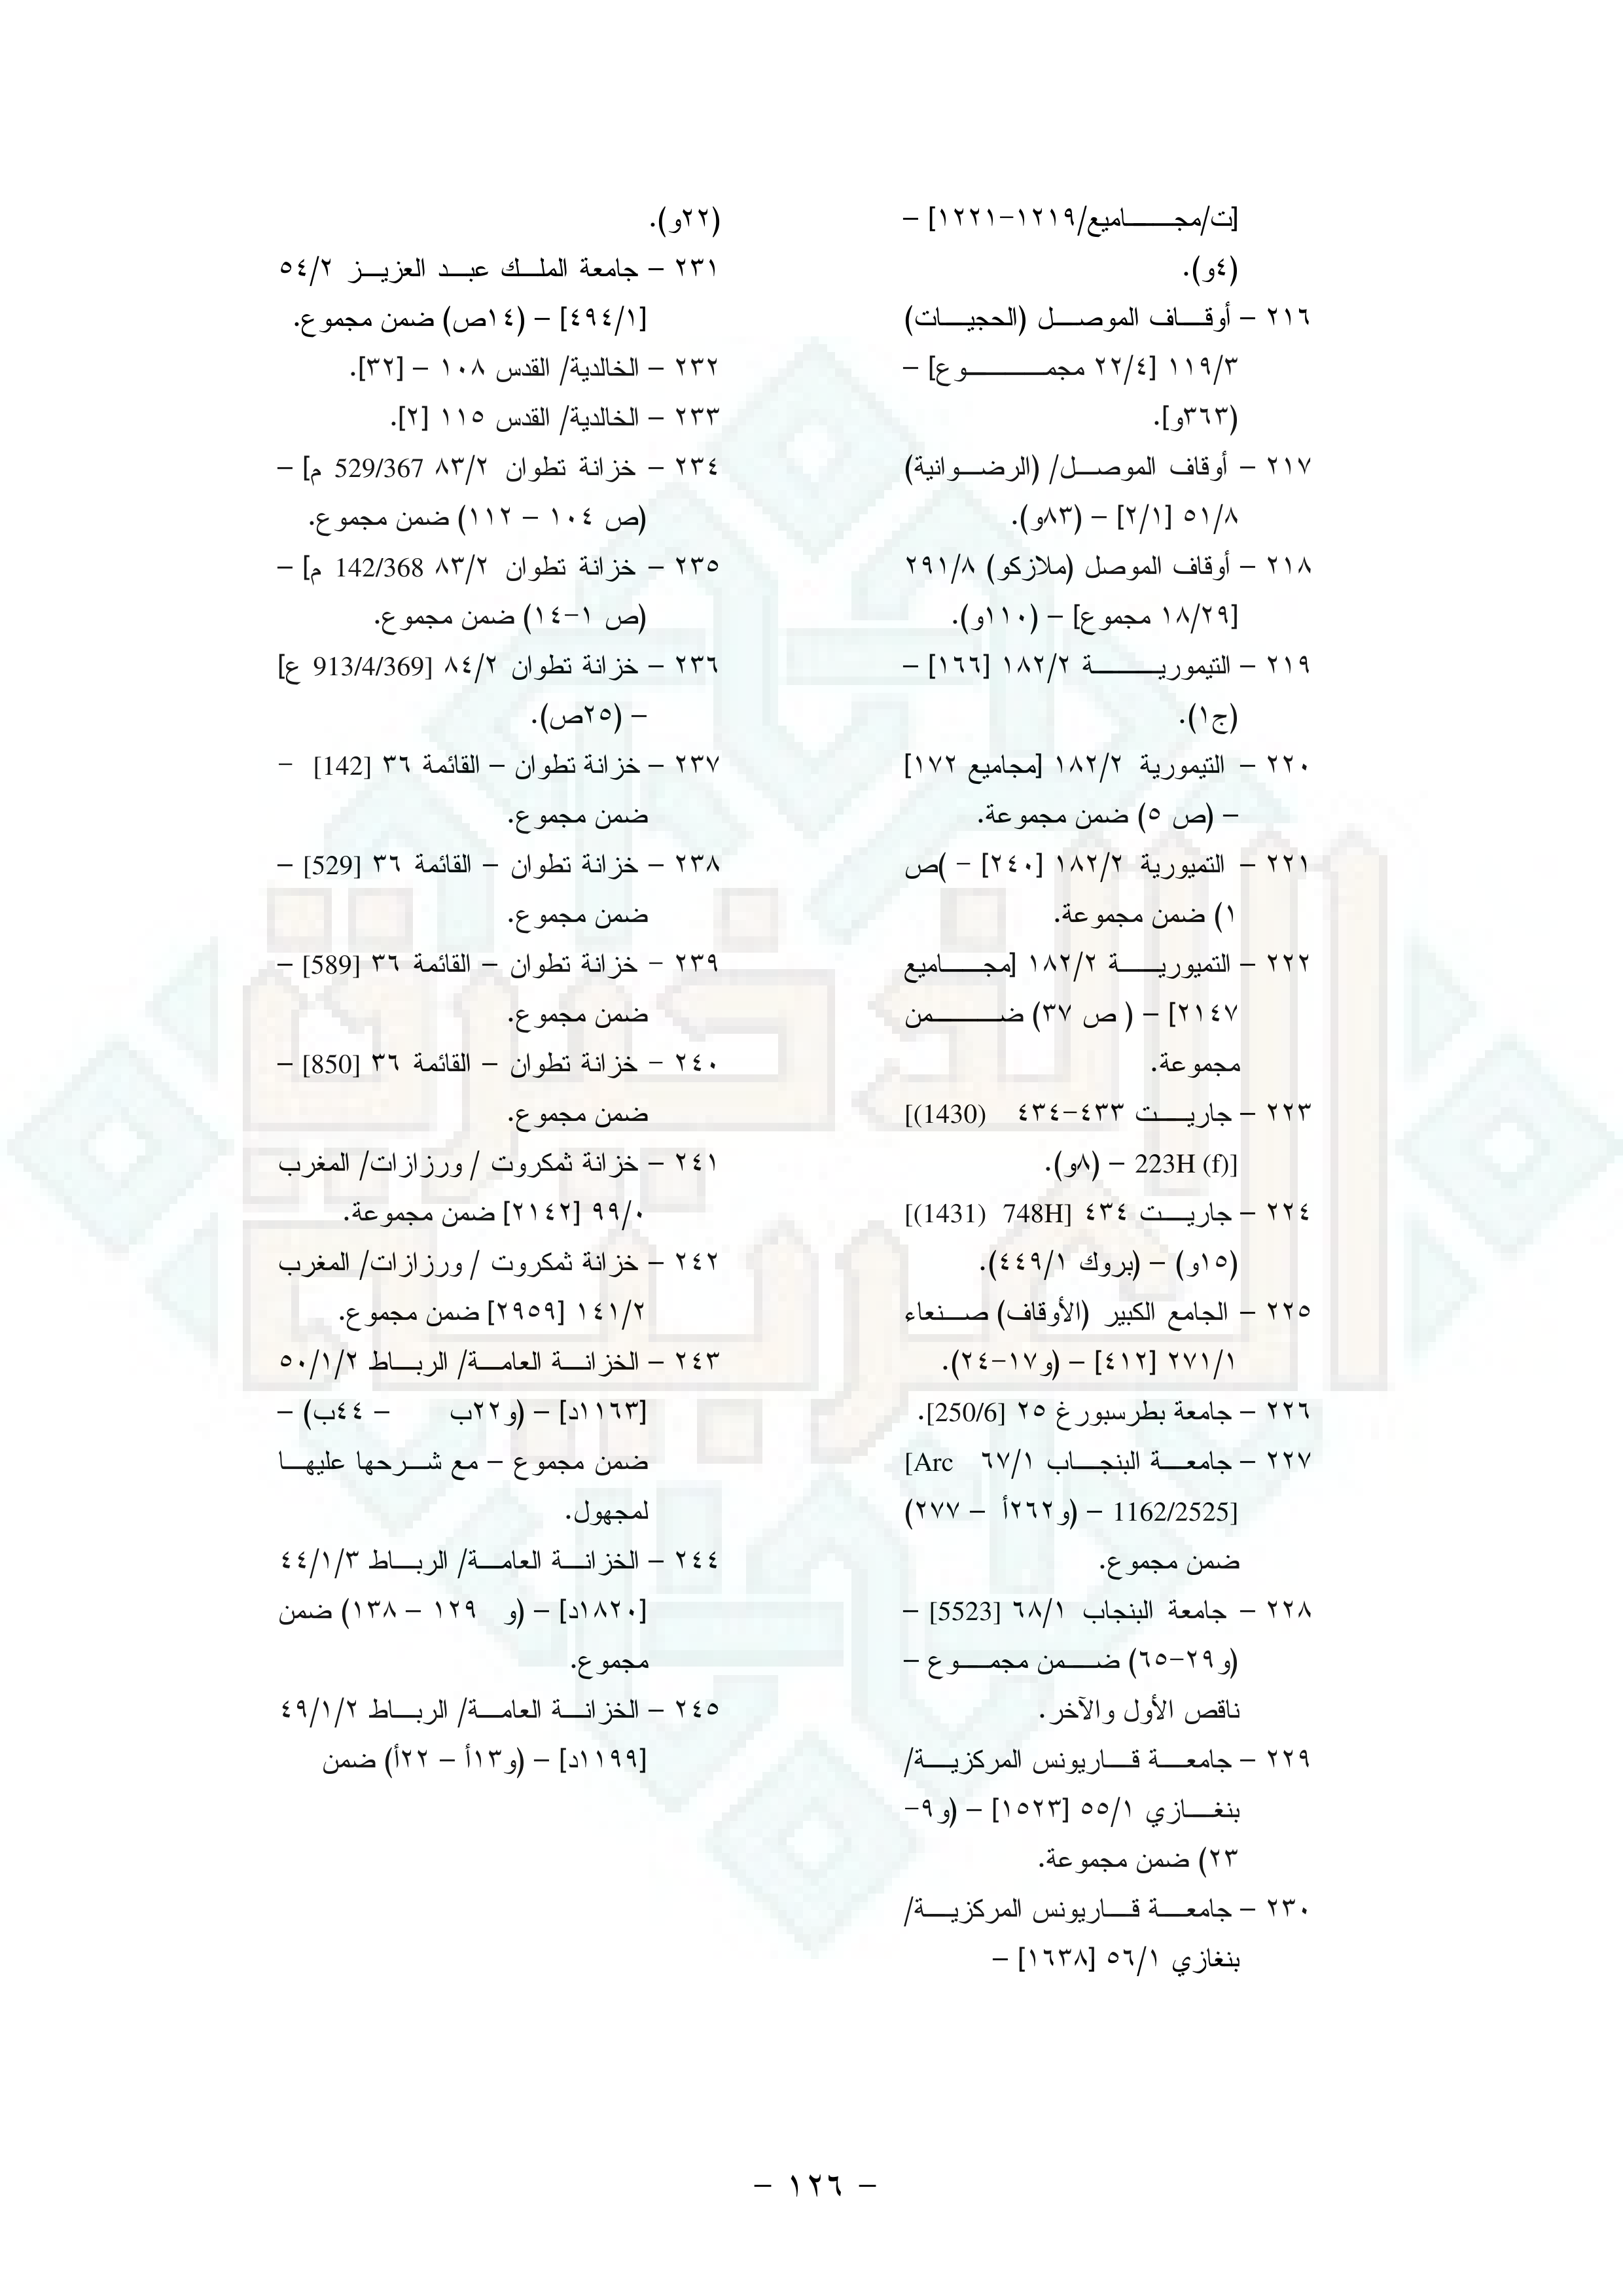 [ت/مجاميع/١٢١٩-١٢٢١] –
(٤و).
٢١٦ – أوقاف الموصل (الحجيات)
١١٩/٣ [٢٢/٤ مجموع] –
(٣٦٣و].
٢١٧ – أوقاف الموصل/ (الرضوانية)
٥١/٨ [٢/١] – (٨٣و).
٢١٨ – أوقاف الموصل (ملازكو) ٢٩١/٨
[١٨/٢٩ مجموع] – (١١٠و).
٢١٩ – التيمورية ١٨٢/٢ [١٦٦] –
(ج١).
٢٢٠ – التيمورية ١٨٢/٢ [مجاميع ١٧٢]
– (ص ٥) ضمن مجموعة.
٢٢١ – التميورية ١٨٢/٢ [٢٤٠] – )ص
١) ضمن مجموعة.
٢٢٢ – التميورية ١٨٢/٢ [مجاميع
٢١٤٧] – ( ص ٣٧) ضمن
مجموعة.
٢٢٣ – جاريت ٤٣٣-٤٣٤ (1430)]
[223H (f) – (٨و).
٢٢٤ – جاريت ٤٣٤ [748H (1431)]
(١٥و) – (بروك ٤٤٩/١).
٢٢٥ – الجامع الكبير (الأوقاف) صنعاء
٢٧١/١ [٤١٢] – (و١٧-٢٤).
٢٢٦ – جامعة بطرسبورغ ٢٥ [250/6].
٢٢٧ – جامعة البنجاب ٦٧/١ [Arc
1162/2525] – (و٢٦٢أ – ٢٧٧)
ضمن مجموع.
٢٢٨ – جامعة البنجاب ٦٨/١ [5523] –
(و٢٩-٦٥) ضمن مجموع –
ناقص الأول والآخر.
٢٢٩ – جامعة قاريونس المركزية/
بنغازي ٥٥/١ [١٥٢٣] – (و٩-
٢٣) ضمن مجموعة.
٢٣٠ – جامعة قاريونس المركزية/
بنغازي ٥٦/١ [١٦٣٨] –
(٢٢و).
٢٣١ – جامعة الملك عبد العزيز ٥٤/٢
[٤٩٤/١] – (١٤ص) ضمن مجموع.
٢٣٢ – الخالدية/ القدس ١٠٨ – [٣٢].
٢٣٣ – الخالدية/ القدس ١١٥ [٢].
٢٣٤ – خزانة تطوان ٨٣/٢ 529/367 م] –
(ص ١٠٤ – ١١٢) ضمن مجموع.
٢٣٥ – خزانة تطوان ٨٣/٢ 142/368 م] –
(ص ١-١٤) ضمن مجموع.
٢٣٦ – خزانة تطوان ٨٤/٢ [913/4/369 ع]
– (٢٥ص).
٢٣٧ – خزانة تطوان – القائمة ٣٦ [142] –
ضمن مجموع.
٢٣٨ – خزانة تطوان – القائمة ٣٦ [529] –
ضمن مجموع.
٢٣٩ – خزانة تطوان – القائمة ٣٦ [589] –
ضمن مجموع.
٢٤٠ – خزانة تطوان – القائمة ٣٦ [850] –
ضمن مجموع.
٢٤١ – خزانة ثمكروت / ورزازات/ المغرب
٩٩/٠ [٢١٤٢] ضمن مجموعة.
٢٤٢ – خزانة ثمكروت / ورزازات/ المغرب
١٤١/٢ [٢٩٥٩] ضمن مجموع.
٢٤٣ – الخزانة العامة/ الرباط ٥٠/١/٢
[١١٦٣د] – (و٢٢ب – ٤٤ب) –
ضمن مجموع – مع شرحها عليها
لمجهول.
٢٤٤ – الخزانة العامة/ الرباط ٤٤/١/٣
[١٨٢٠د] – (و ١٢٩ – ١٣٨) ضمن
مجموع.
٢٤٥ – الخزانة العامة/ الرباط ٤٩/١/٢
[١١٩٩د] – (و١٣أ – ٢٢أ) ضمن
– ١٢٦ –
الذخيرة
العربية